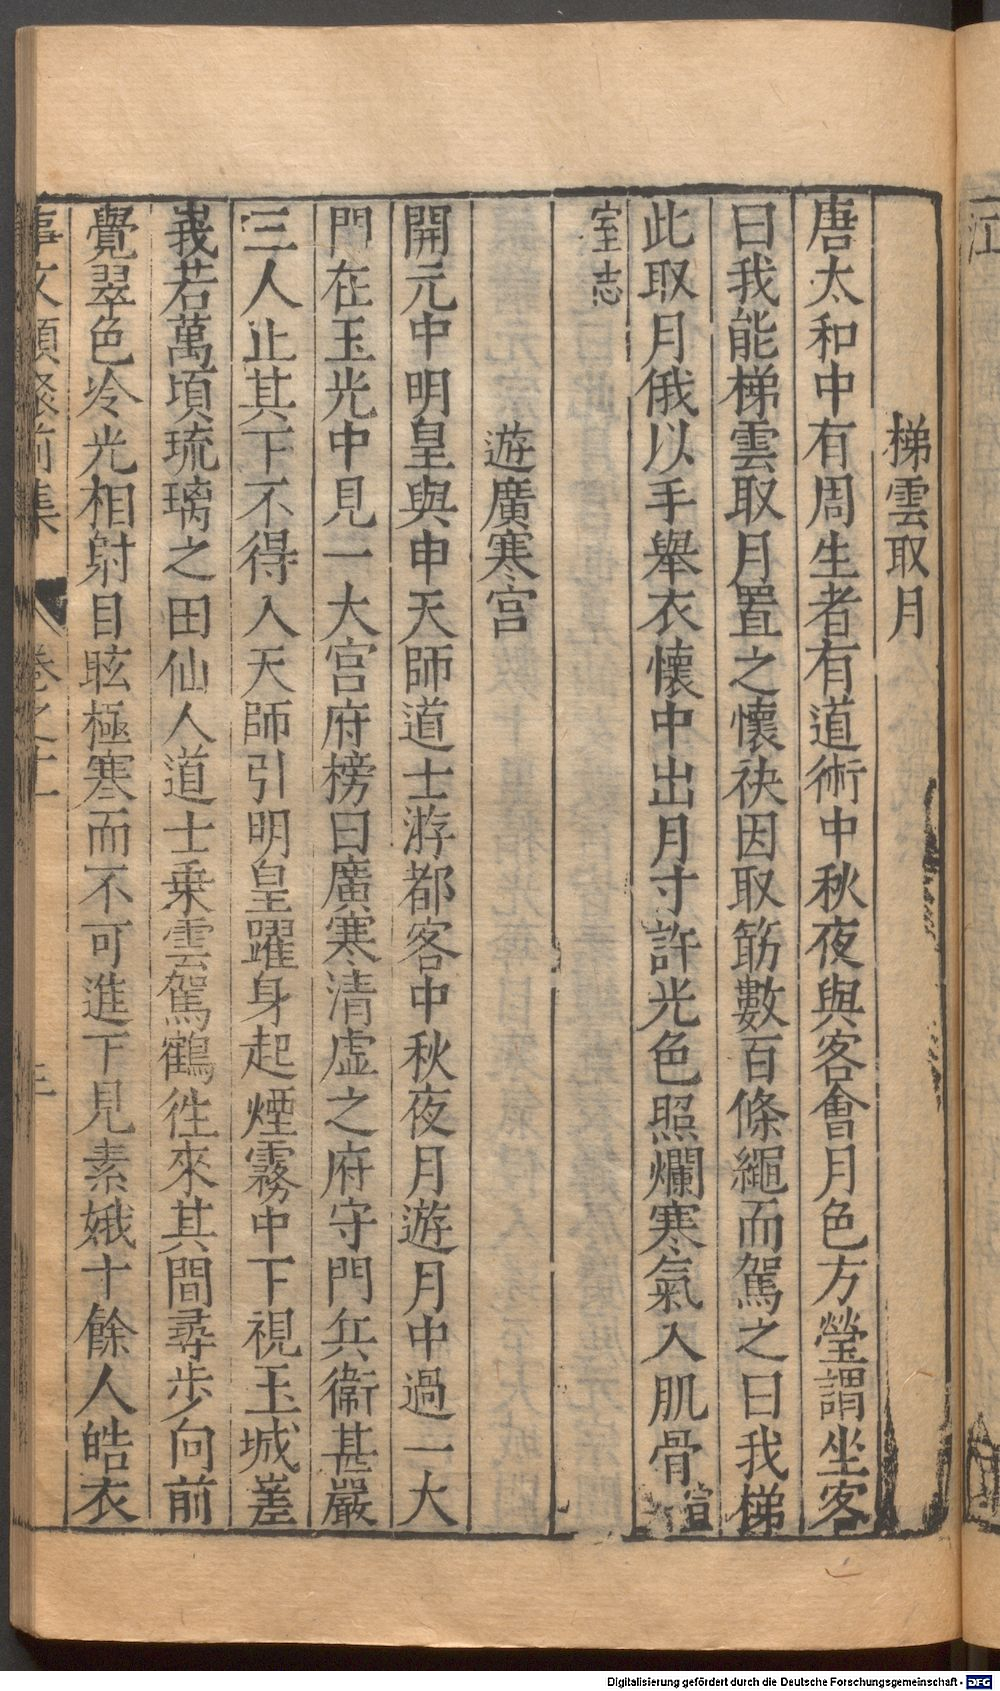 梯雲取月
唐太和中有周生者有道術中秋夜與客會月色方瑩謂坐客
曰我能梯雲取月置之懷袂因取筯數百條繩而駕之曰我梯
此取月俄以手舉衣懷中出月寸許光色照爛寒氣入肌骨宣
室志
遊廣寒宮
開元中明皇與申天師道士游都客中秋夜月遊月中過一大
門在玉光中見一大宮府榜曰廣寒清虛之府守門兵衛甚嚴
三人止其下不得入天師引明皇躍身起煙霧中下視玉城嵳
峩若萬頃琉璃之田仙人道士乗雲駕鶴徃來其間尋步向前
覺翠色冷光相射目眩極寒而不可進下見素娥十餘人皓衣
事文類聚前集 卷之十一 三
江
Digitalisierung gefördert durch die Deutsche Forschungsgemeinschaft - DFG